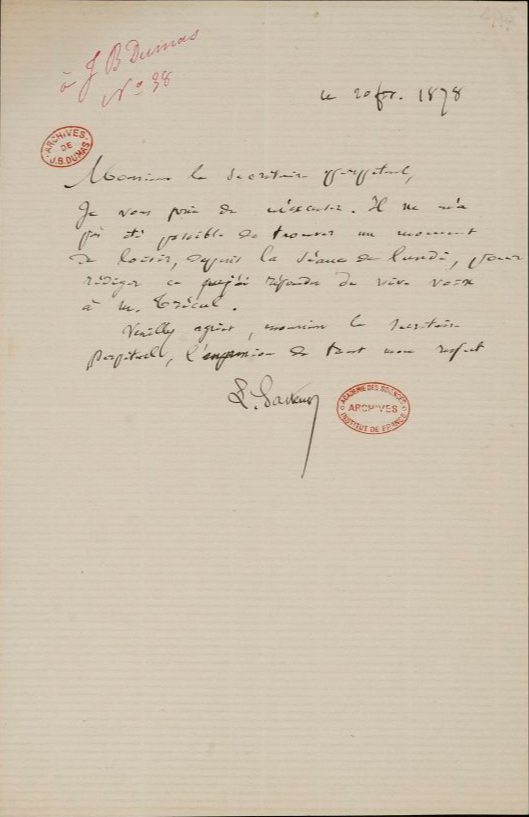 à J B Dumas
N° 38
le 20 fév. 1878
ARCHIVES
DE
J.B. DUMAS
Monsieur le Secrétaire perpétuel,
Je vous prie de m'excuser. Il ne m'a
pas été possible de trouver un moment
de loisir, depuis la séance de lundi, pour
rédiger ce que j'ai répondu de vive voix
à M. Trécul.
Veuillez agréer, monsieur le Secrétaire
perpétuel, l'expression de tout mon respect
L. Pasteur
ACADÉMIE DES SCIENCES
ARCHIVES
INSTITUT DE FRANCE